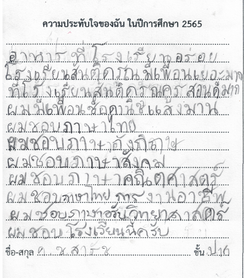 ความประทับใจของฉัน ในปีการศึกษา 2565
อาหารที่โรงเรียนอร่อย
โรงเรียนสนุกครับมีเพื่อนเยอะมาก
ที่โรงเรียนสนุกครูสอนดีมาก
ผมมีเพื่อนชื่อ
ผมชอบภาษาไทย
ผมชอบภาษาอังกฤษ
ผมชอบภาษาสังคม
ผมชอบภาษาคณิตศาสตร์
ผมชอบภาษาไทย การงานอาชีพ
ผมชอบภาษาวิทยาศาสตร์
ผมชอบโรงเรียนนี้ครับ
ชื่อ-สกุล ด.ช. ชั้น ป.1/6